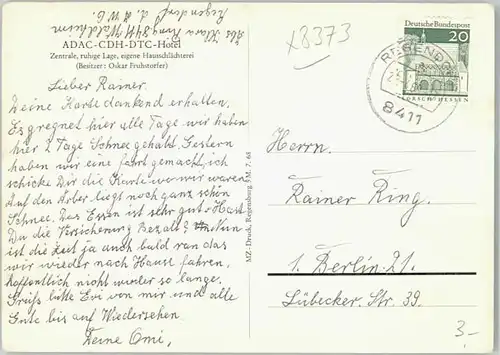 Abs. Klara Ring 8411 Waldheim
Regendorf
ADAC-CDH-DTC-Hotel
Zentrale, ruhige Lage, eigene Hausschlächterei
(Besitzer: Oskar Fruhstorfer)
Lieber Rainer.
Deine Karte dankend erhalten.
Es regnet hier alle Tage wir haben
hier 2 Tage Schnee gehabt. Gestern
haben wir eine fahrt gemacht, ich
schicke Dir die Karte wo wir waren
Auf den Arber liegt noch ganz schön
Schnee. Das Essen ist sehr gut. Hast
Du die Versicherung Bezalt? Nun
ist die Zeit ja auch bald ran das
wir wieder nach Hause fahren.
hoffentlich nicht wieder so lange.
Grüß bitte Evi von mir und alle
Gute bis auf Wiedersehen
Deine Omi,
MZ-Druck, Regensburg, 5 M. 7. 68
x8373
Deutsche Bundespost
20
LORSCH/HESSEN
REGENDORF
8411
Herrn.
Rainer Ring.
1. Berlin-21.
Lübecker, Str. 39.
3,-